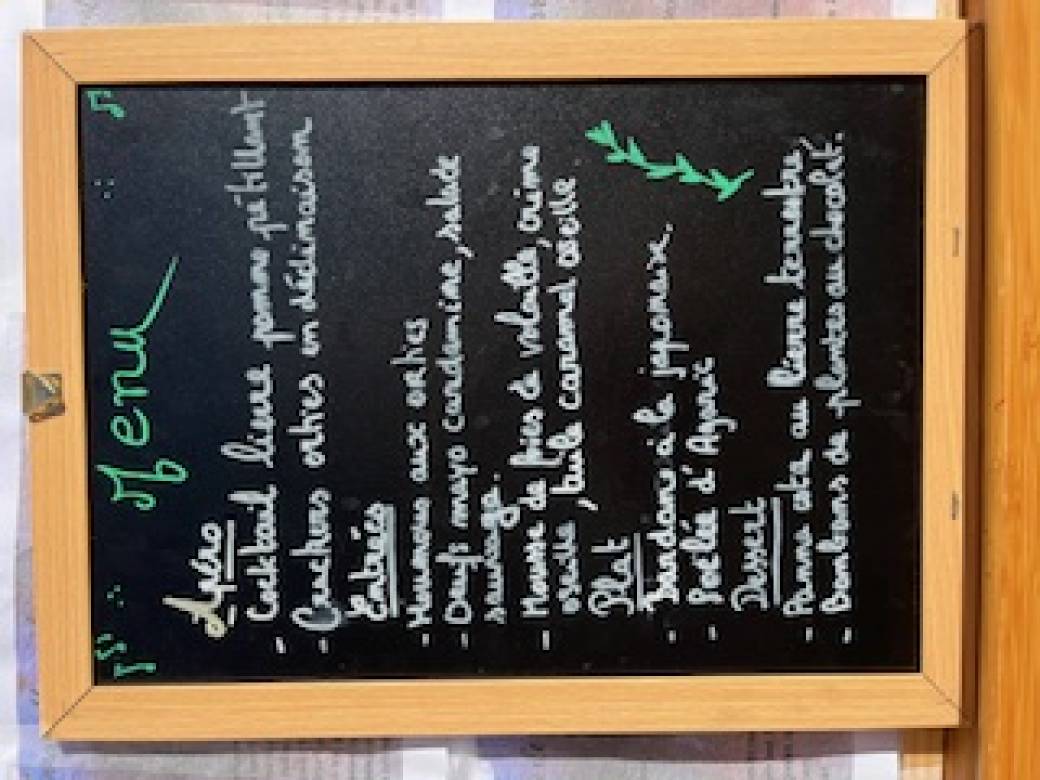 Menu
Apéro
- Cocktail lierre pomme pétillant
- Crackers orties en déclinaison
Entrées
- Houmous aux orties
- Oeufs mayo cardamine, salade
sauvage.
- Mousse de foies de volaille, crème
oseille, tuile caramel oseille.
Plat
- à la japonaise.
- Poêlée d'Agarit
Dessert
- Panna cota au lierre terrestre,
- Bonbons de plantes au chocolat.